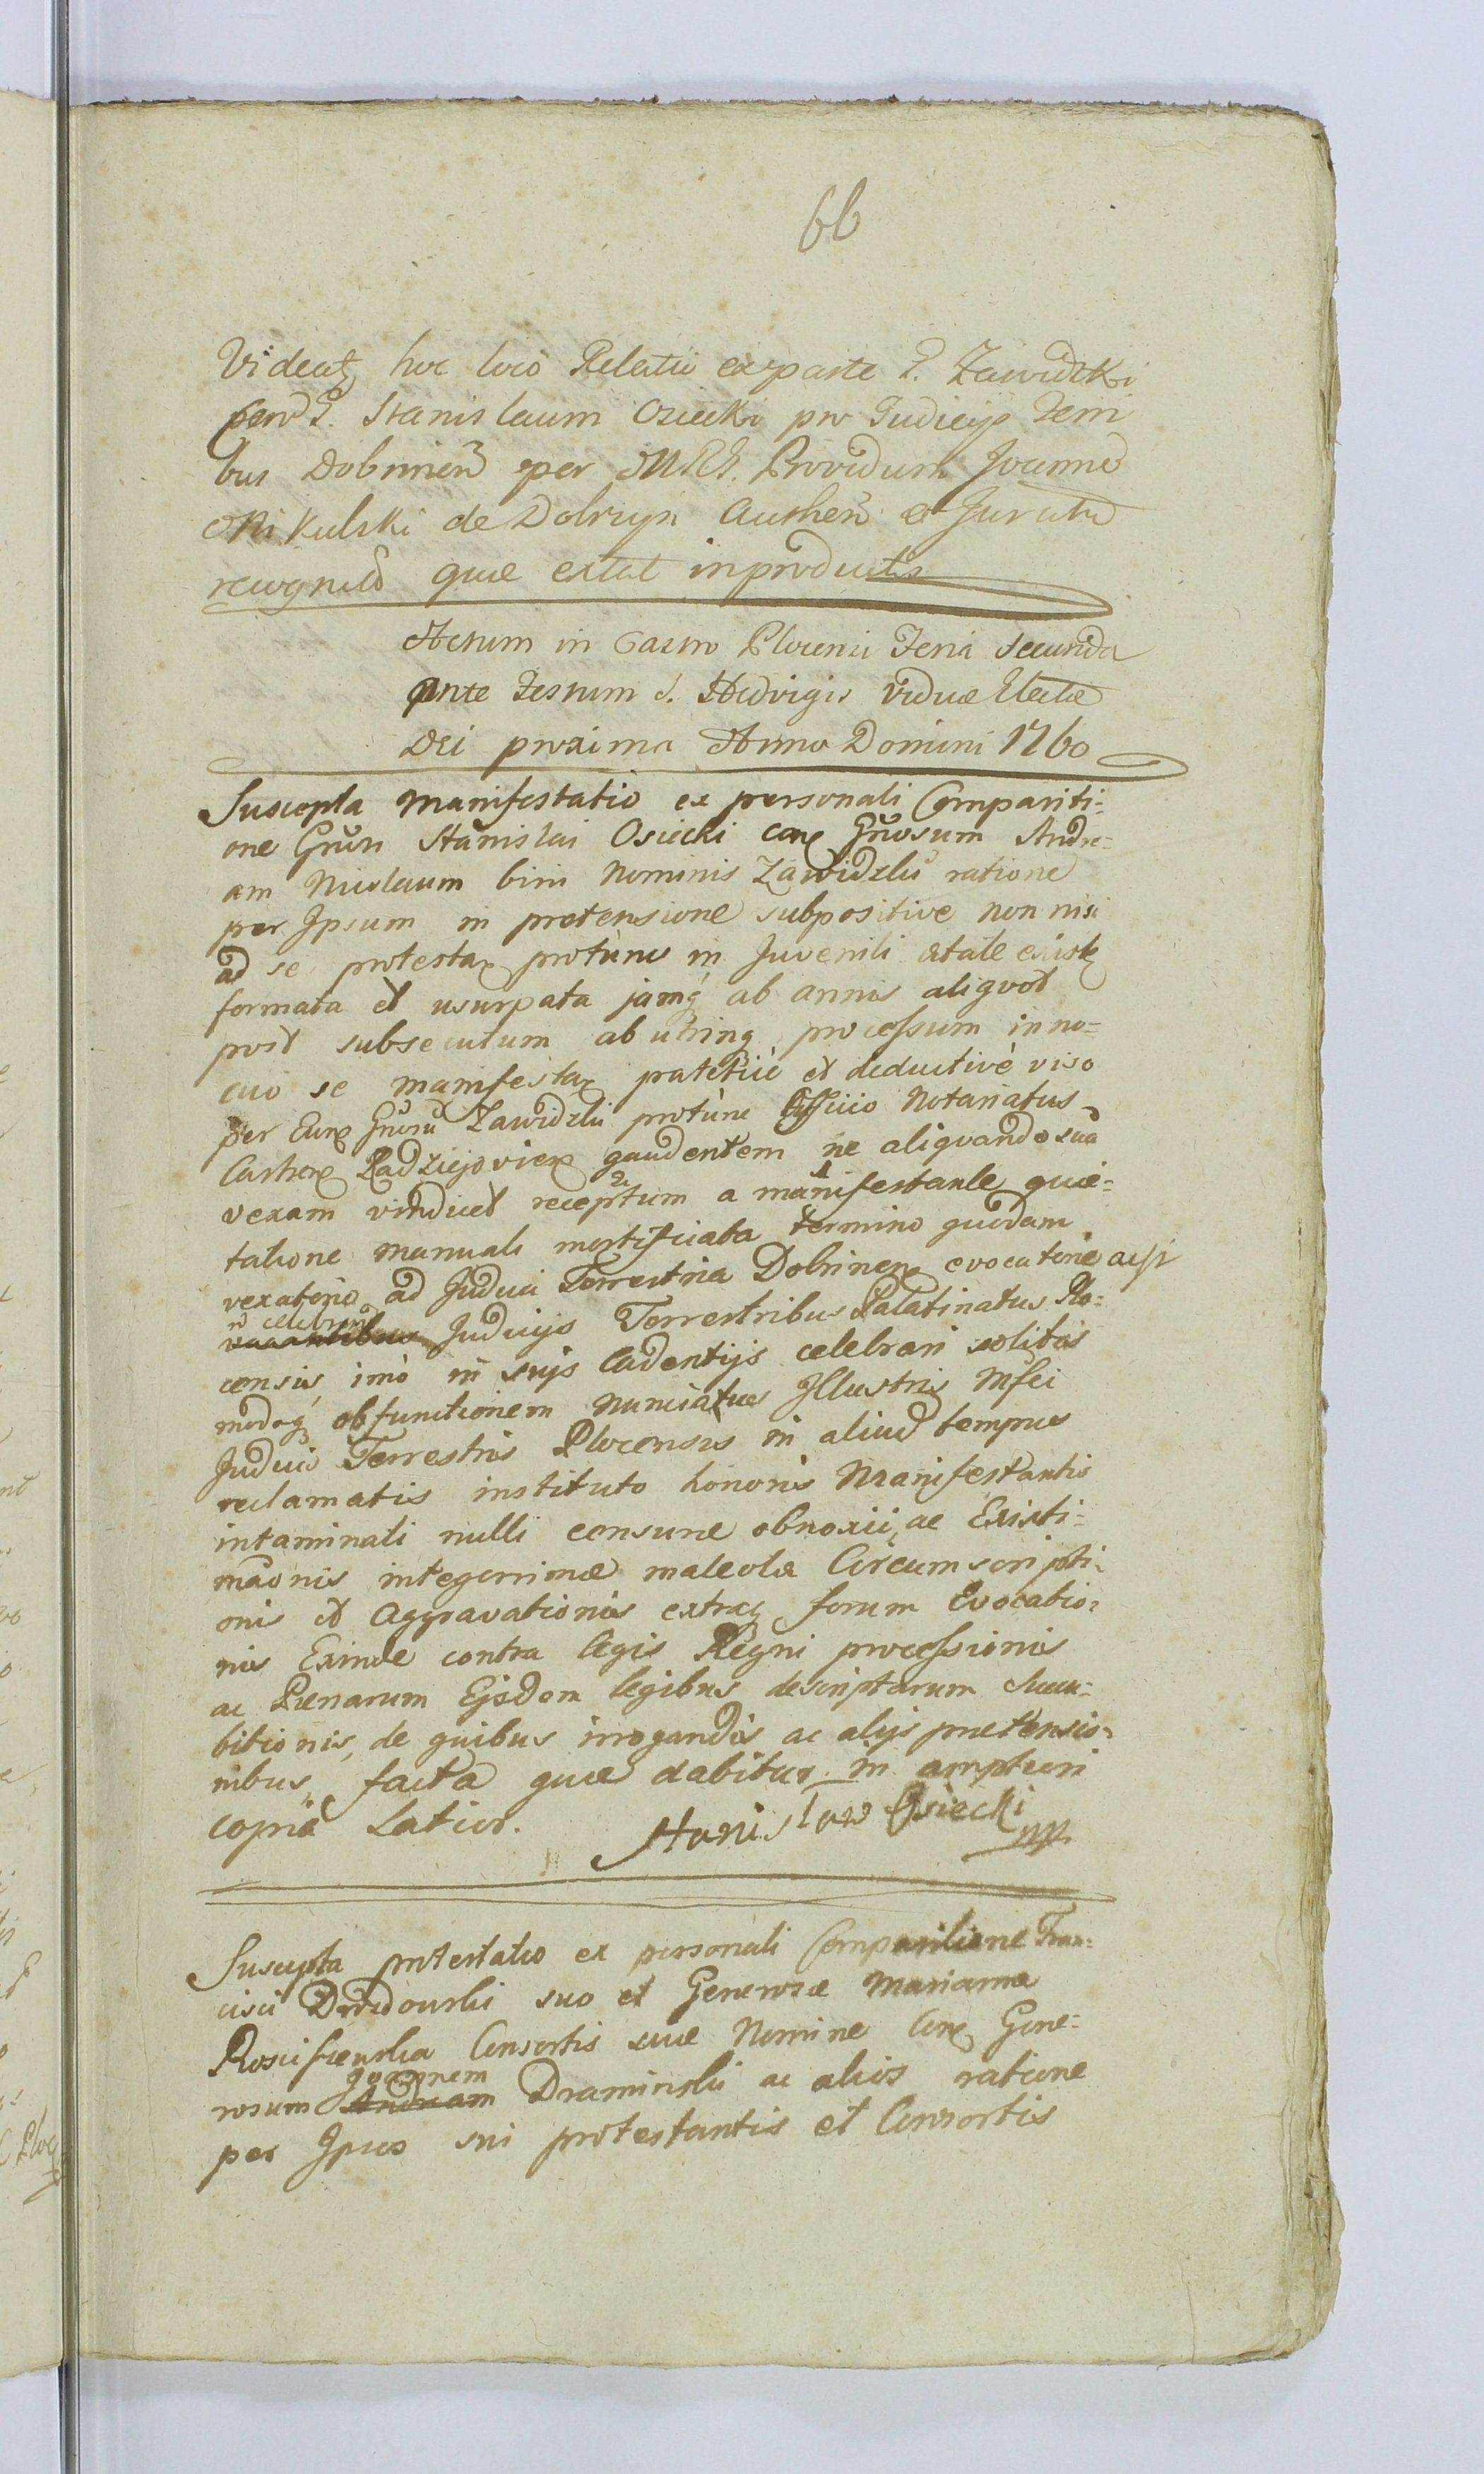 66
Videatz hoc loco Relatio ex parte G. Zawidzki
per G. Stanislaum Osiecki pro Judicijs Terri
bus Dobrinen per MRG. Providum Joanne
Mikulski de Dobrzyn Authen et Juratu
recognita quæ extat in productis
Actum in Castro Plocensi Feria Secunda
ante Festum S. Hedvigis Viduæ Electæ
Dei proxima Anno Domini 1760
Suscepta Manifestatio ex personali Compariti-
one Gnŭsi Stanislai Osiecki con Gnŭosum Andre-
am Nicolaum bini Nominis Zawidzki ratione
per Ipsum in pretensione subpositive non nisi
ad se protestan protŭnc in Juvenili ætate existe
formata et usurpata jamq ab annis aliqvot
post subsecutum ab utrinq processum in no-
cuo se manifestan et deductivè viso
per Eun Gnŭsŭ Zawidzki protŭnc Officio Notariatus
Castren Radziejovien gaudentem ne aliqvando sua
vexam vindicet receptum a manifestante quie-
tatione manuali mortificata termino quodam
vexatorio ad Judicia Terrestria Dobrinen evocatorie acsi
n celebran vacantibus Judicijs Terrestribus Palatinatus Plo-
censis, imò in suis Cadentijs celebrari solitis
modoq ob functionem nunciatus Illustris Mfci
Judicis Terrestris Plocensis in aliud tempus
reclamatis instituto honoris Manifestantis
intaminati nulli censuræ obnoxii, ac Existi-
mãonis integerrimæ Circumscripti-
onis et Aggravationis extraq forum Evocatio-
nis Exinde contra legis Regni processionis
ac Pænarum Ejsdem legibus descriptarum Succu-
bitionis, de quibus irrogandis ac alijs prætensio-
nibus, facta quæ dabitur in ampliori
copia Latior. Stanisław Osiecki
mp
Suscepta protestatio ex personali Comparitione Fran-
cisci suo et Generosæ Mariannæ
Consortis suæ Nomine Con Gene-
rosum Joannem Andream Draminski ac alios ratione
per Ipsos sui protestantis et Consortis